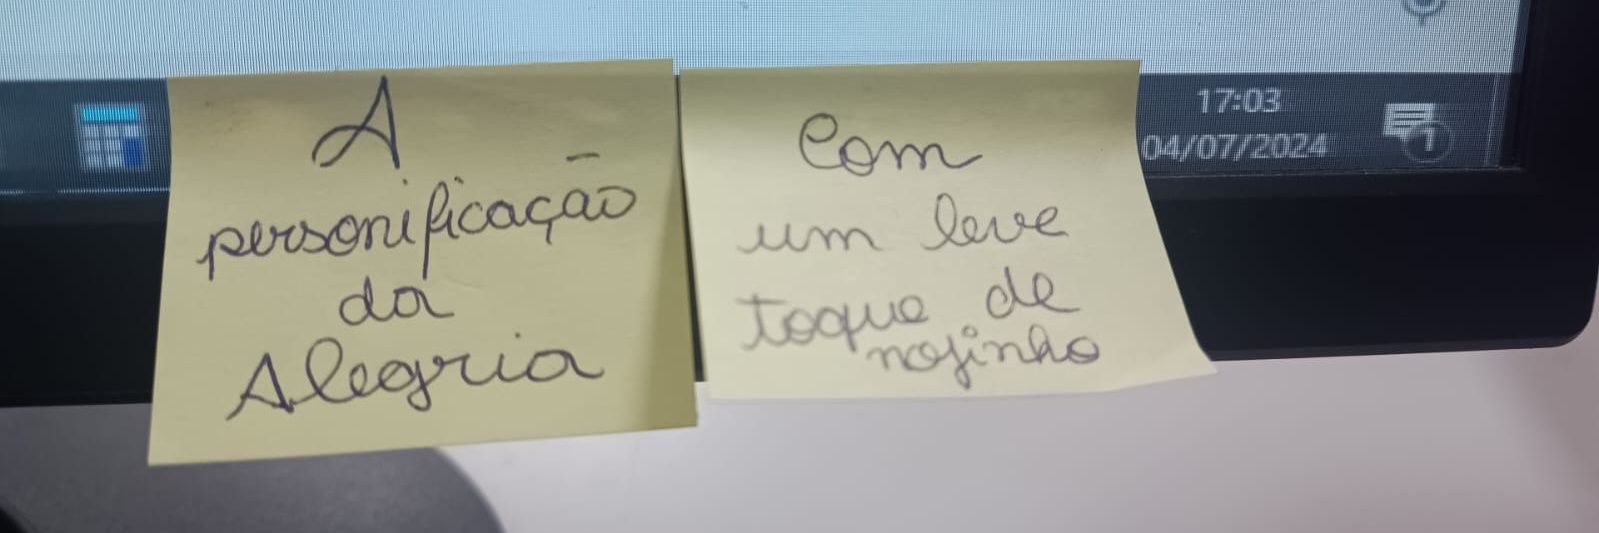 A
personificação
da
Alegria
Com
um leve
toque de
nojinho
17:03
04/07/2024
1